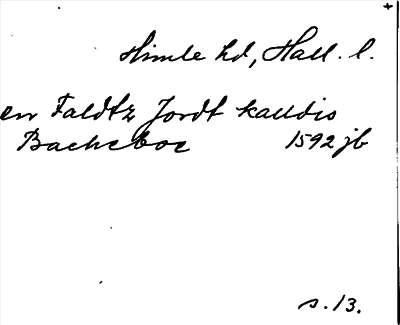 Himle hd, Hall. l.
en Faldtz Jordt kalldis
Bacheboe 1592 jb
s. 13.